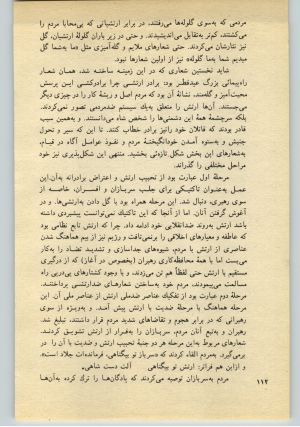 مردمی که بهسوی گلوله‌ها می‌رفتند، در برابر ارتشیانی که بی‌محابا مردم را
می‌کشتند، کم‌تر به‌تقابل می‌اندیشیدند. و حتی در زیر باران گلولهٔ ارتشیان، گل
نیز نثارشان می‌کردند. حتی شعارهای ملایم و گله‌آمیزی مثل «ما به‌شما گل
میدیم شما به‌ما گلوله» نیز از اولین شعارها نبود.
شاید نخستین شعاری که در این زمینه ساخته شد، همان شعار
راه‌پیمائی بزرگ عیدفطر: برادر ارتشی چرا برادرکشی. این پرسش
محبت‌آمیز و گله‌مند، نشانهٔ آن بود که مردم اصل و ریشهٔ کار را در چیزی دیگر
می‌جستند. آن‌ها ارتش را متعلق به‌یک سیستم ضدمردمی تصور نمی‌کردند.
بلکه سرچشمهٔ همهٔ این دشمنی‌ها را شخص شاه می‌دانستند. و به‌همین سبب
قادر بودند که قاتلان خود رانیز برادر خطاب کنند. تا این که سیر و تحول
جنبش و به‌ستوه آمدن خودانگیختهٔ مردم و نفوذ عوامل آگاه در قیام،
به‌شعارهای این بخش شکل تازه‌ئی بخشید. منتهی این شکل‌پذیری نیز خود
مراحل مختلفی را گذراند.
مرحلهٔ اول عبارت بود از تحبیب ارتش و اعتراض برادرانه به‌آن.این
عمل به‌عنوان تاکتیکی برای جلب سربازان و افسران، خاصه از
سوی رهبری، دنبال شد. این مرحله همراه بود با گل دادن به‌ارتشی‌ها، و در
آغوش گرفتن آنان. اما از آنجا که این تاکتیک نمی‌توانست پیشبردی داشته
باشد ارتش به‌روند ضدانقلابی خود ادامه داد. چرا که ارتش تابع نظامی بود
که عاطفه و معیارهای اخلاقی را برنمی‌تافت و رژیم نیز از بیم هماهنگ شدن
عناصری از ارتش با مردم، شیوه‌های جداسازی و تشدید تضاد را به‌کار
می‌بست اما با همهٔ محافظه‌کاری رهبران (بخصوص در آغاز) که از درگیری
مستقیم با ارتش حتی لفظاً هم تن می‌زدند، و با وجود کشتارهای پی‌درپی راه
مسالمت می‌پیمودند، مردم خود به‌ساختن شعارهای ضدارتشی پرداختند.
مرحلهٔ دوم عبارت بود از تفکیک عناصر ضدملی ارتش از عناصر ملی آن. این
مرحله هماهنگ با مرحلهٔ ضدیت با ارتش پیش آمد. و به‌ویژه از سوی
رهبرانی که در برابر هجوم و تقاضاهای شدید مردم قرار داشتند، تبلیغ شد.
رهبران و به‌تبع آنان مردم، سربازان را به‌فرار از ارتش تشویق کردند.
شعارهای مربوط به‌این مرحله هر دو جنبهٔ تحبیب ارتش و ضدیت با آن را در
برمی‌گیرد. به‌مردم القاء کردند که «سرباز تو بیگناهی، فرمانده‌ات جلاد است».
و ازاین هم فراتر: ارتش تو بیگناهی آلت دست شاهی.
مردم به‌سربازان توصیه می‌کردند که پادگان‌ها را ترک کرده به‌آن‌ها
۱۱۲